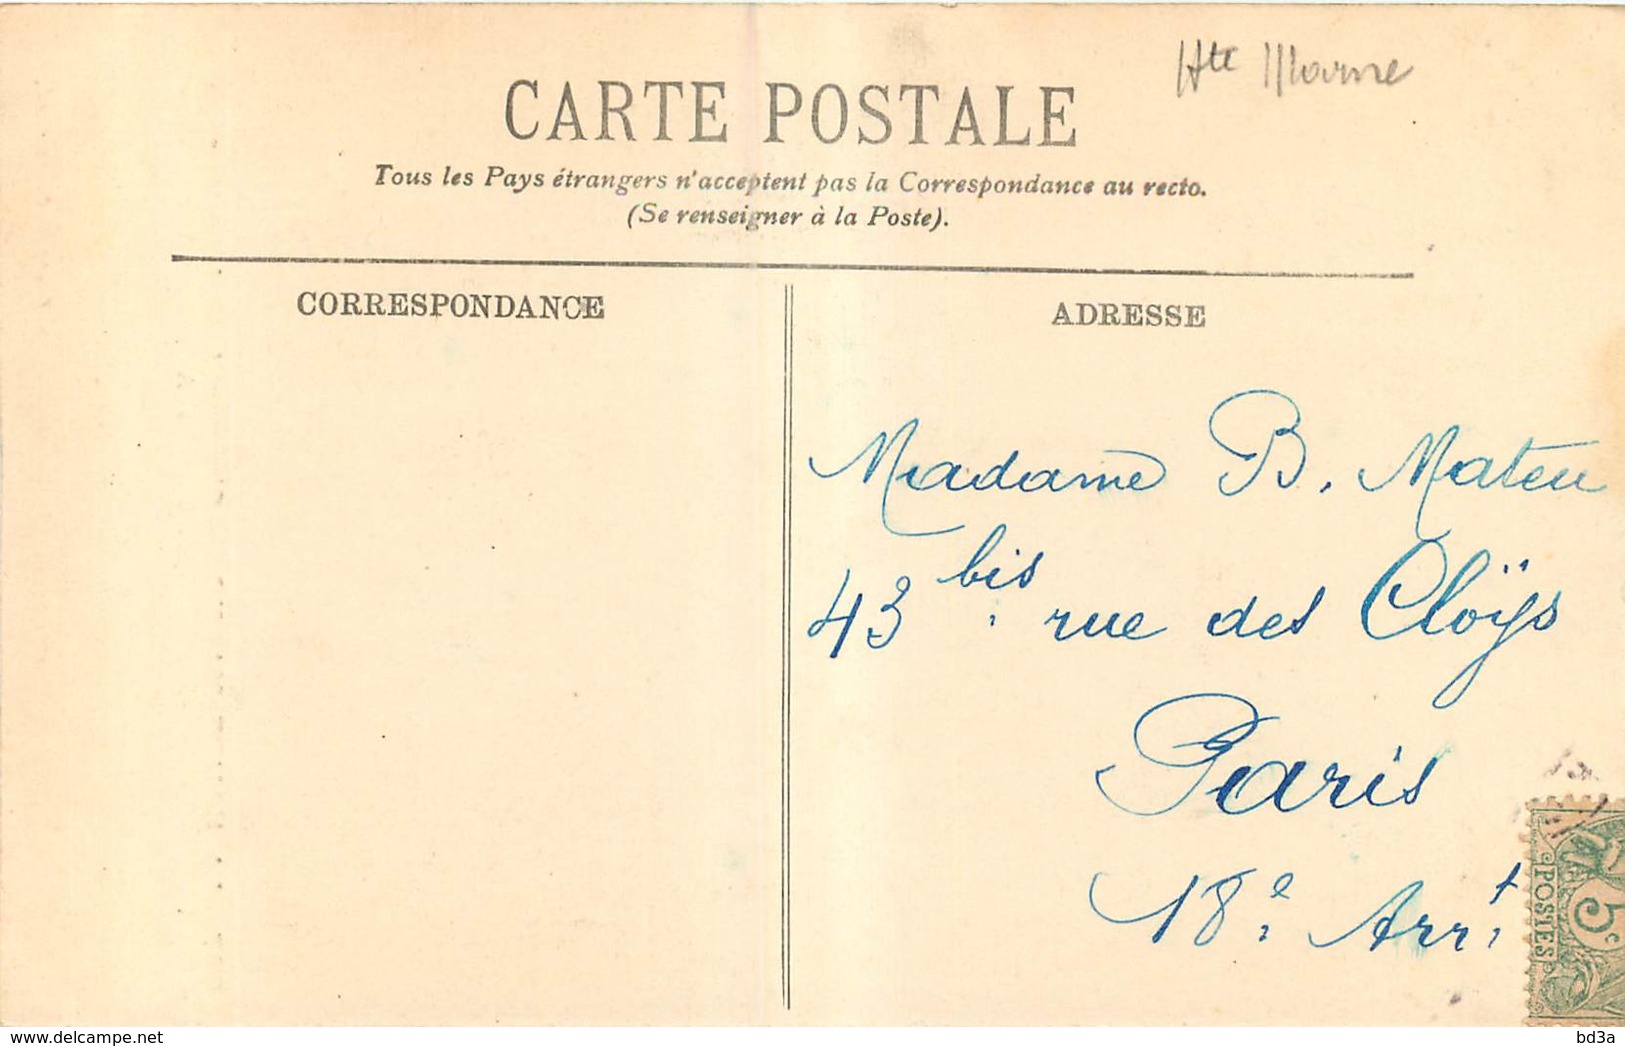 Hte Marne
CARTE POSTALE
Tous les Pays étrangers n'acceptent pas la Correspondance au recto.
(Se renseigner à la Poste).
CORRESPONDANCE
ADRESSE
Madame B. Mateu
43 bis. rue des Cloÿs
Paris
18.e Arr.t
POSTES
5c
delcampe.net
bd3a